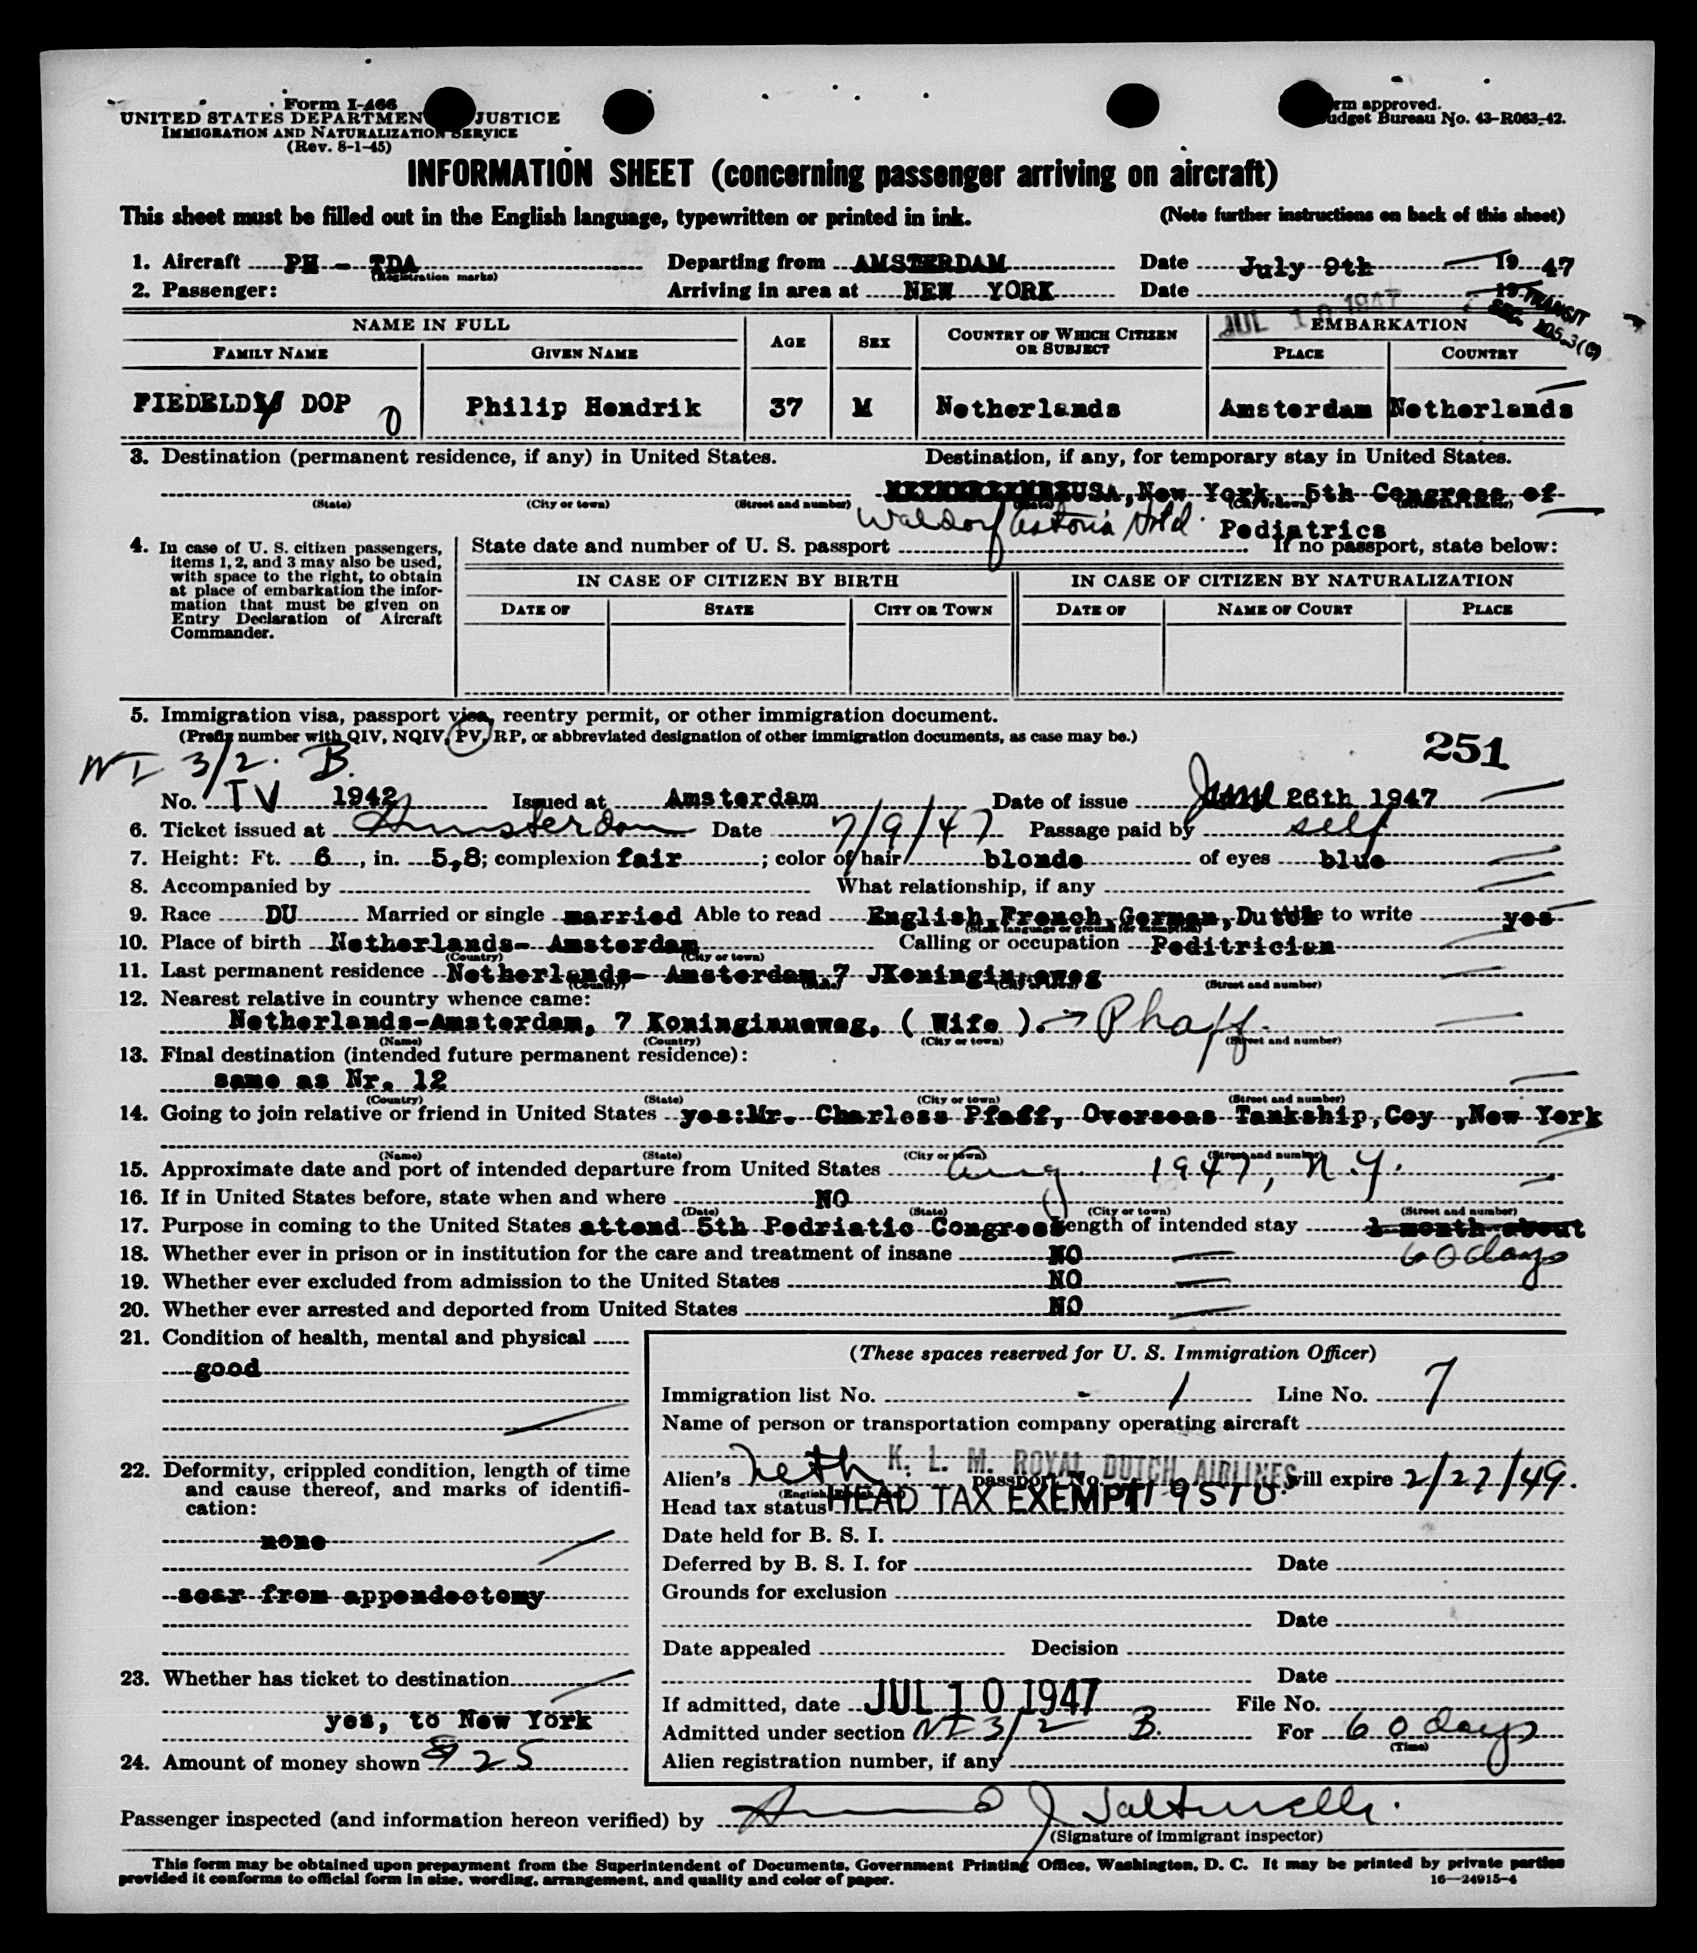 Form I-466
UNITED STATES DEPARTMENT JUSTICE
IMMIGRATION AND NATURALIZATION SERVICE
(Rev. 8-1-45)
rm approved.
udget Bureau No. 43-R063-42.
INFORMATION SHEET (concerning passenger arriving on aircraft)
This sheet must be filled out in the English language, typewritten or printed in ink. (Note further instructions on back of this sheet)
1. Aircraft PH - TDA Departing from AMSTERDAM Date July 9th 1947
(Registration marks)
2. Passenger: Arriving in area at NEW YORK Date JUL 10 1947 19
TRANSIT
SEC. 105.3(C)
NAME IN FULL AGE SEX COUNTRY OF WHICH CITIZEN OR SUBJECT EMBARKATION
FAMILY NAME GIVEN NAME PLACE COUNTRY
PIEDELDY DOP Philip Hendrik 37 M Netherlands Amsterdam Netherlands
3. Destination (permanent residence, if any) in United States. Destination, if any, for temporary stay in United States.
USA, New York, 5th Congress of
(State) (City or town) (Street and number) (State) (City or town) (Street and number)
Waldorf Astoria Hotel Pediatrics
4. In case of U. S. citizen passengers, items 1, 2, and 3 may also be used, with space to the right, to obtain at place of embarkation the information that must be given on Entry Declaration of Aircraft Commander.
State date and number of U. S. passport If no passport, state below:
IN CASE OF CITIZEN BY BIRTH IN CASE OF CITIZEN BY NATURALIZATION
DATE OF STATE CITY OR TOWN DATE OF NAME OF COURT PLACE
5. Immigration visa, passport visa, reentry permit, or other immigration document.
(Prefix number with QIV, NQIV, PV, RP, or abbreviated designation of other immigration documents, as case may be.)
251
NI 3/2. B.
No. TV 1942 Issued at Amsterdam Date of issue June 26th 1947
6. Ticket issued at Amsterdam Date 7/9/47 Passage paid by self
7. Height: Ft. 6, in. 5,8; complexion fair; color of hair blonde of eyes blue
8. Accompanied by What relationship, if any
9. Race DU Married or single married Able to read English, French, German, Dutch Able to write yes
(State language or ground for exemption)
10. Place of birth Netherlands- Amsterdam Calling or occupation Peditrician
(Country) (City or town)
11. Last permanent residence Netherlands- Amsterdam, 7 JKoninginneweg
(Country) (State) (City or town) (Street and number)
12. Nearest relative in country whence came:
Netherlands-Amsterdam, 7 Koninginneweg, ( Wife ). → Phaff.
(Name) (Country) (City or town) (Street and number)
13. Final destination (intended future permanent residence):
same as Nr. 12
(Country) (State) (City or town) (Street and number)
14. Going to join relative or friend in United States yes:Mr. Charless Pfaff, Overseas Tankship, Coy ,New York
(Name) (State) (City or town) (Street and number)
15. Approximate date and port of intended departure from United States Aug 1947, N.Y.
16. If in United States before, state when and where NO
(Date) (State) (City or town) (Street and number)
17. Purpose in coming to the United States attend 5th Pedriatic Congress Length of intended stay 1 month about
60 days
18. Whether ever in prison or in institution for the care and treatment of insane NO
19. Whether ever excluded from admission to the United States NO
20. Whether ever arrested and deported from United States NO
21. Condition of health, mental and physical
good
22. Deformity, crippled condition, length of time and cause thereof, and marks of identification:
none
scar from appendectomy
23. Whether has ticket to destination
yes, to New York
24. Amount of money shown $25
(These spaces reserved for U. S. Immigration Officer)
Immigration list No. - 1 Line No. 7
Name of person or transportation company operating aircraft
K. L. M. ROYAL DUTCH AIRLINES
Alien's Neth passport No. will expire 2/27/49.
Head tax status HEAD TAX EXEMPT
Date held for B. S. I.
Deferred by B. S. I. for Date
Grounds for exclusion
Date
Date appealed Decision
Date
If admitted, date JUL 10 1947 File No.
Admitted under section NI 3/2 B. For 60 days
(Time)
Alien registration number, if any
Passenger inspected (and information hereon verified) by
(Signature of immigrant inspector)
This form may be obtained upon prepayment from the Superintendent of Documents, Government Printing Office, Washington, D. C. It may be printed by private parties
provided it conforms to official form in size, wording, arrangement, and quality and color of paper.
16—24915-4